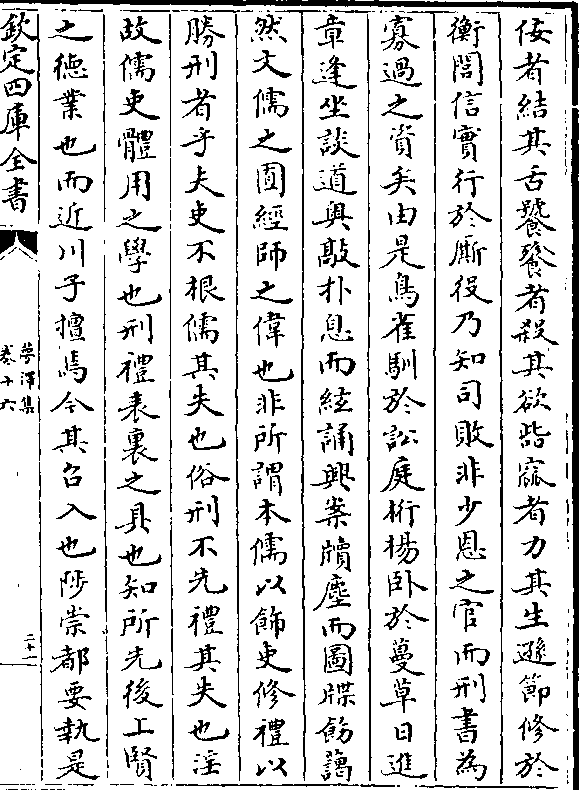 佞者結其舌饕餮者殺其欲呰窳者力其生遜節修於
衡閭信實行於廝役乃知司敗非少恩之官而刑書為
寡過之資矣由是鳥雀馴於訟庭桁楊臥於蔓草日進
章逢坐談道奥敲朴息而絃誦興案牘塵而圖牒飭藹
然文儒之囿經師之偉也非所謂本儒以飾吏修禮以
勝刑者乎夫吏不根儒其失也俗刑不先禮其失也淫
故儒吏體用之學也刑禮表裏之具也知所先後工賢
之徳業也而近川子擅焉今其召入也陟崇都要執是
欽定四庫全書
夢澤集
卷十六
二十一